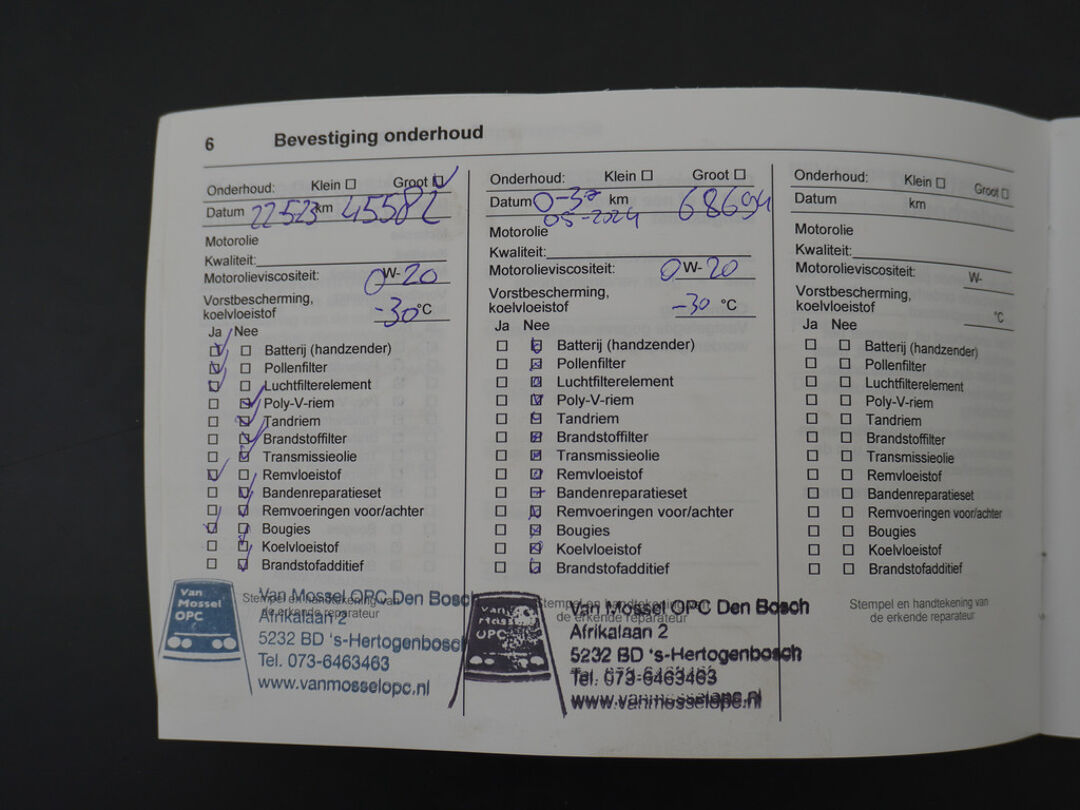 6 Bevestiging onderhoud
Onderhoud: Klein Groot
Datum 22-5-23 km 45582
Motorolie
Kwaliteit:
Motorolieviscositeit: 0W-20
Vorstbescherming,
koelvloeistof -30°C
Ja Nee
Batterij (handzender)
Pollenfilter
Luchtfilterelement
Poly-V-riem
Tandriem
Brandstoffilter
Transmissieolie
Remvloeistof
Bandenreparatieset
Remvoeringen voor/achter
Bougies
Koelvloeistof
Brandstofadditief
Stempel en handtekening van
de erkende reparateur
Van Mossel OPC
Van Mossel OPC Den Bosch
Afrikalaan 2
5232 BD 's-Hertogenbosch
Tel. 073-6463463
www.vanmosselopc.nl
Onderhoud: Klein Groot
Datum km 68694
05-2024
Motorolie
Kwaliteit:
Motorolieviscositeit: 0W-20
Vorstbescherming,
koelvloeistof -30 °C
Ja Nee
Batterij (handzender)
Pollenfilter
Luchtfilterelement
Poly-V-riem
Tandriem
Brandstoffilter
Transmissieolie
Remvloeistof
Bandenreparatieset
Remvoeringen voor/achter
Bougies
Koelvloeistof
Brandstofadditief
Stempel en handtekening van
de erkende reparateur
Van Mossel OPC
Van Mossel OPC Den Bosch
Afrikalaan 2
5232 BD 's-Hertogenbosch
Tel. 073-6463463
www.vanmosselopc.nl
Onderhoud: Klein Groot
Datum km
Motorolie
Kwaliteit:
Motorolieviscositeit: W-
Vorstbescherming,
koelvloeistof °C
Ja Nee
Batterij (handzender)
Pollenfilter
Luchtfilterelement
Poly-V-riem
Tandriem
Brandstoffilter
Transmissieolie
Remvloeistof
Bandenreparatieset
Remvoeringen voor/achter
Bougies
Koelvloeistof
Brandstofadditief
Stempel en handtekening van
de erkende reparateur